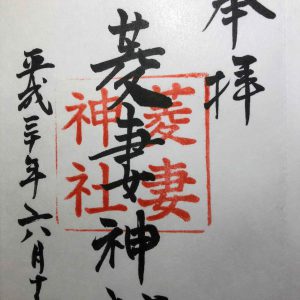 奉拝
菱妻神社
菱妻
神社
平成三十年六月十